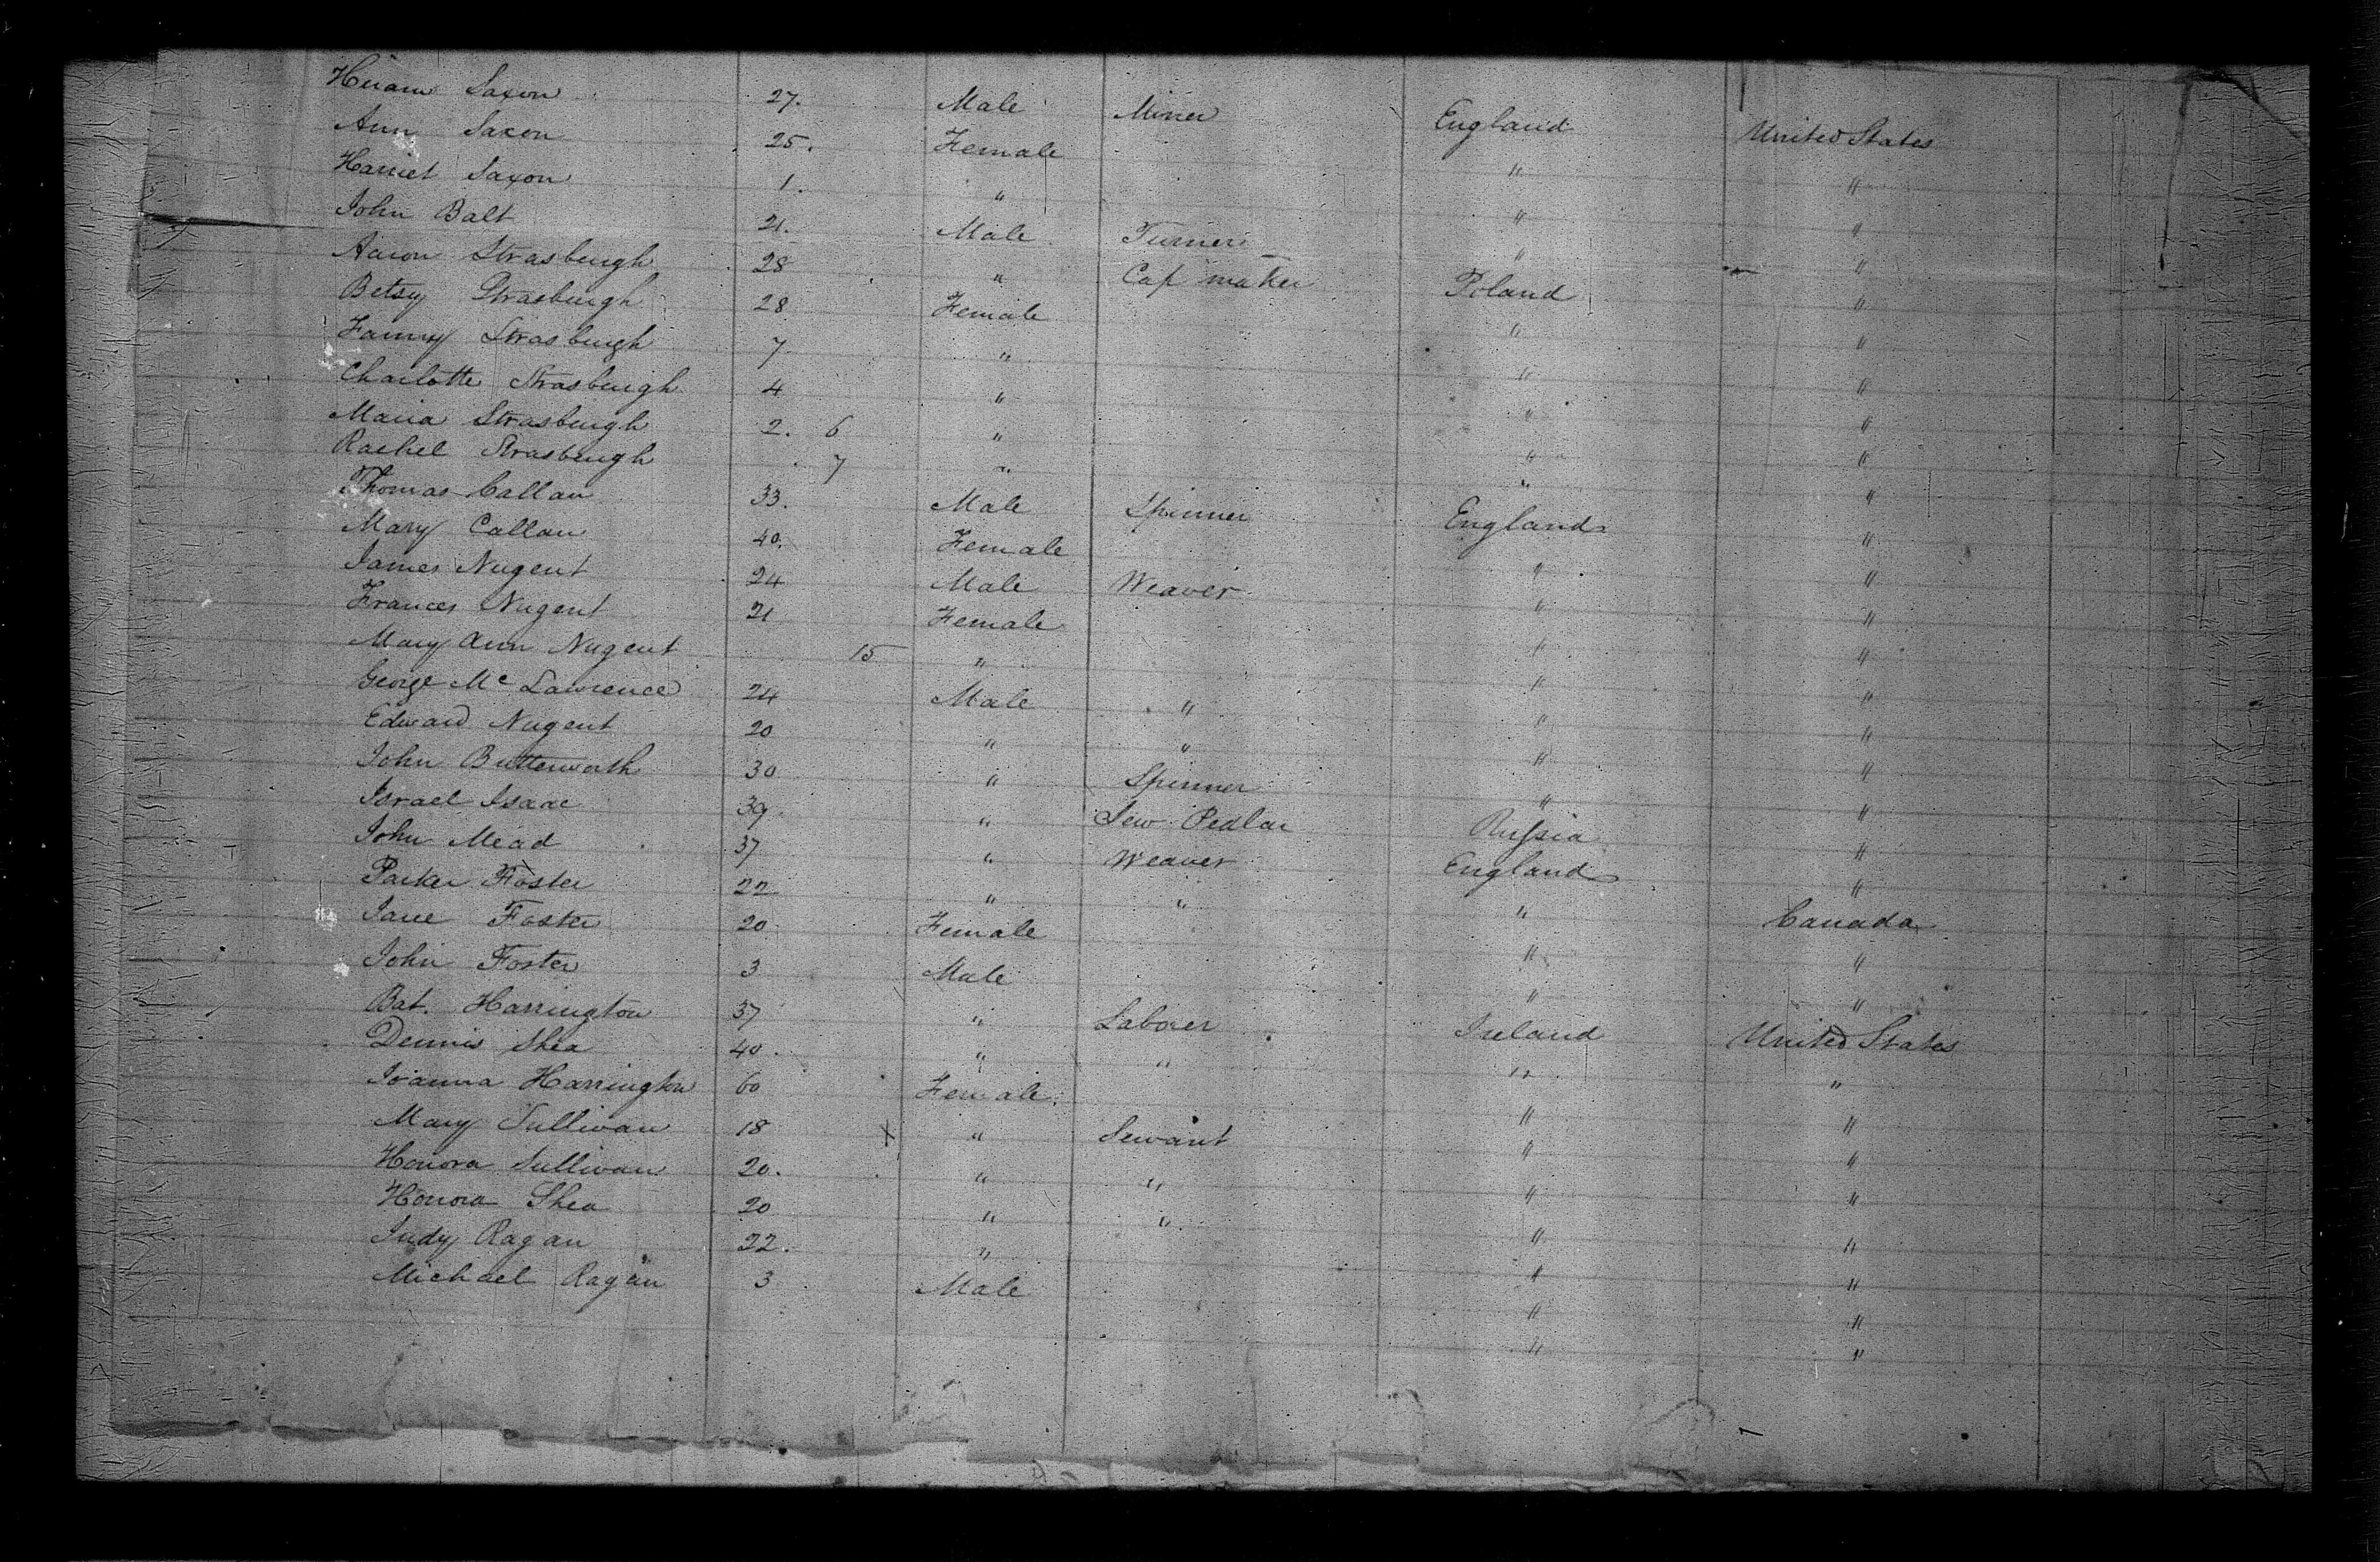 Hiram Saxon 27. Male Miner England United States
Ann Saxon 25. Female " "
Harriet Saxon 1. " " "
John Balt 21. Male Turner " "
Aaron Strasburgh 28 " Cap maker Poland "
Betsy Strasburgh 28 Female " "
Fanny Strasburgh 7 " " "
Charlotte Strasburgh 4 " " "
Maria Strasburgh 2. 6 " " "
Rachel Strasburgh 7 " " "
Thomas Callan 33. Male Spinner England "
Mary Callan 40. Female " "
James Nugent 24 Male Weaver " "
Frances Nugent 21 Female " "
Mary Ann Nugent 15 " " "
George Mc Lawrence 24 Male " " "
Edward Nugent 20 " " " "
John Butterworth 30 " Spinner " "
Israel Isaac 39 " Jew Pedlar Russia "
John Mead 37 " Weaver England "
Parker Foster 22 " " " Canada
Jane Foster 20 Female " "
John Foster 3 Male " "
Bat. Harrington 37 " Laborer Ireland United States
Dennis Shea 40. " " " "
Joanna Harrington 60 Female " "
Mary Sullivan 18 " Servant " "
Honora Sullivan 20. " " " "
Honora Shea 20 " " " "
Judy Ragan 22. " " "
Michael Ragan 3 Male " "
" "